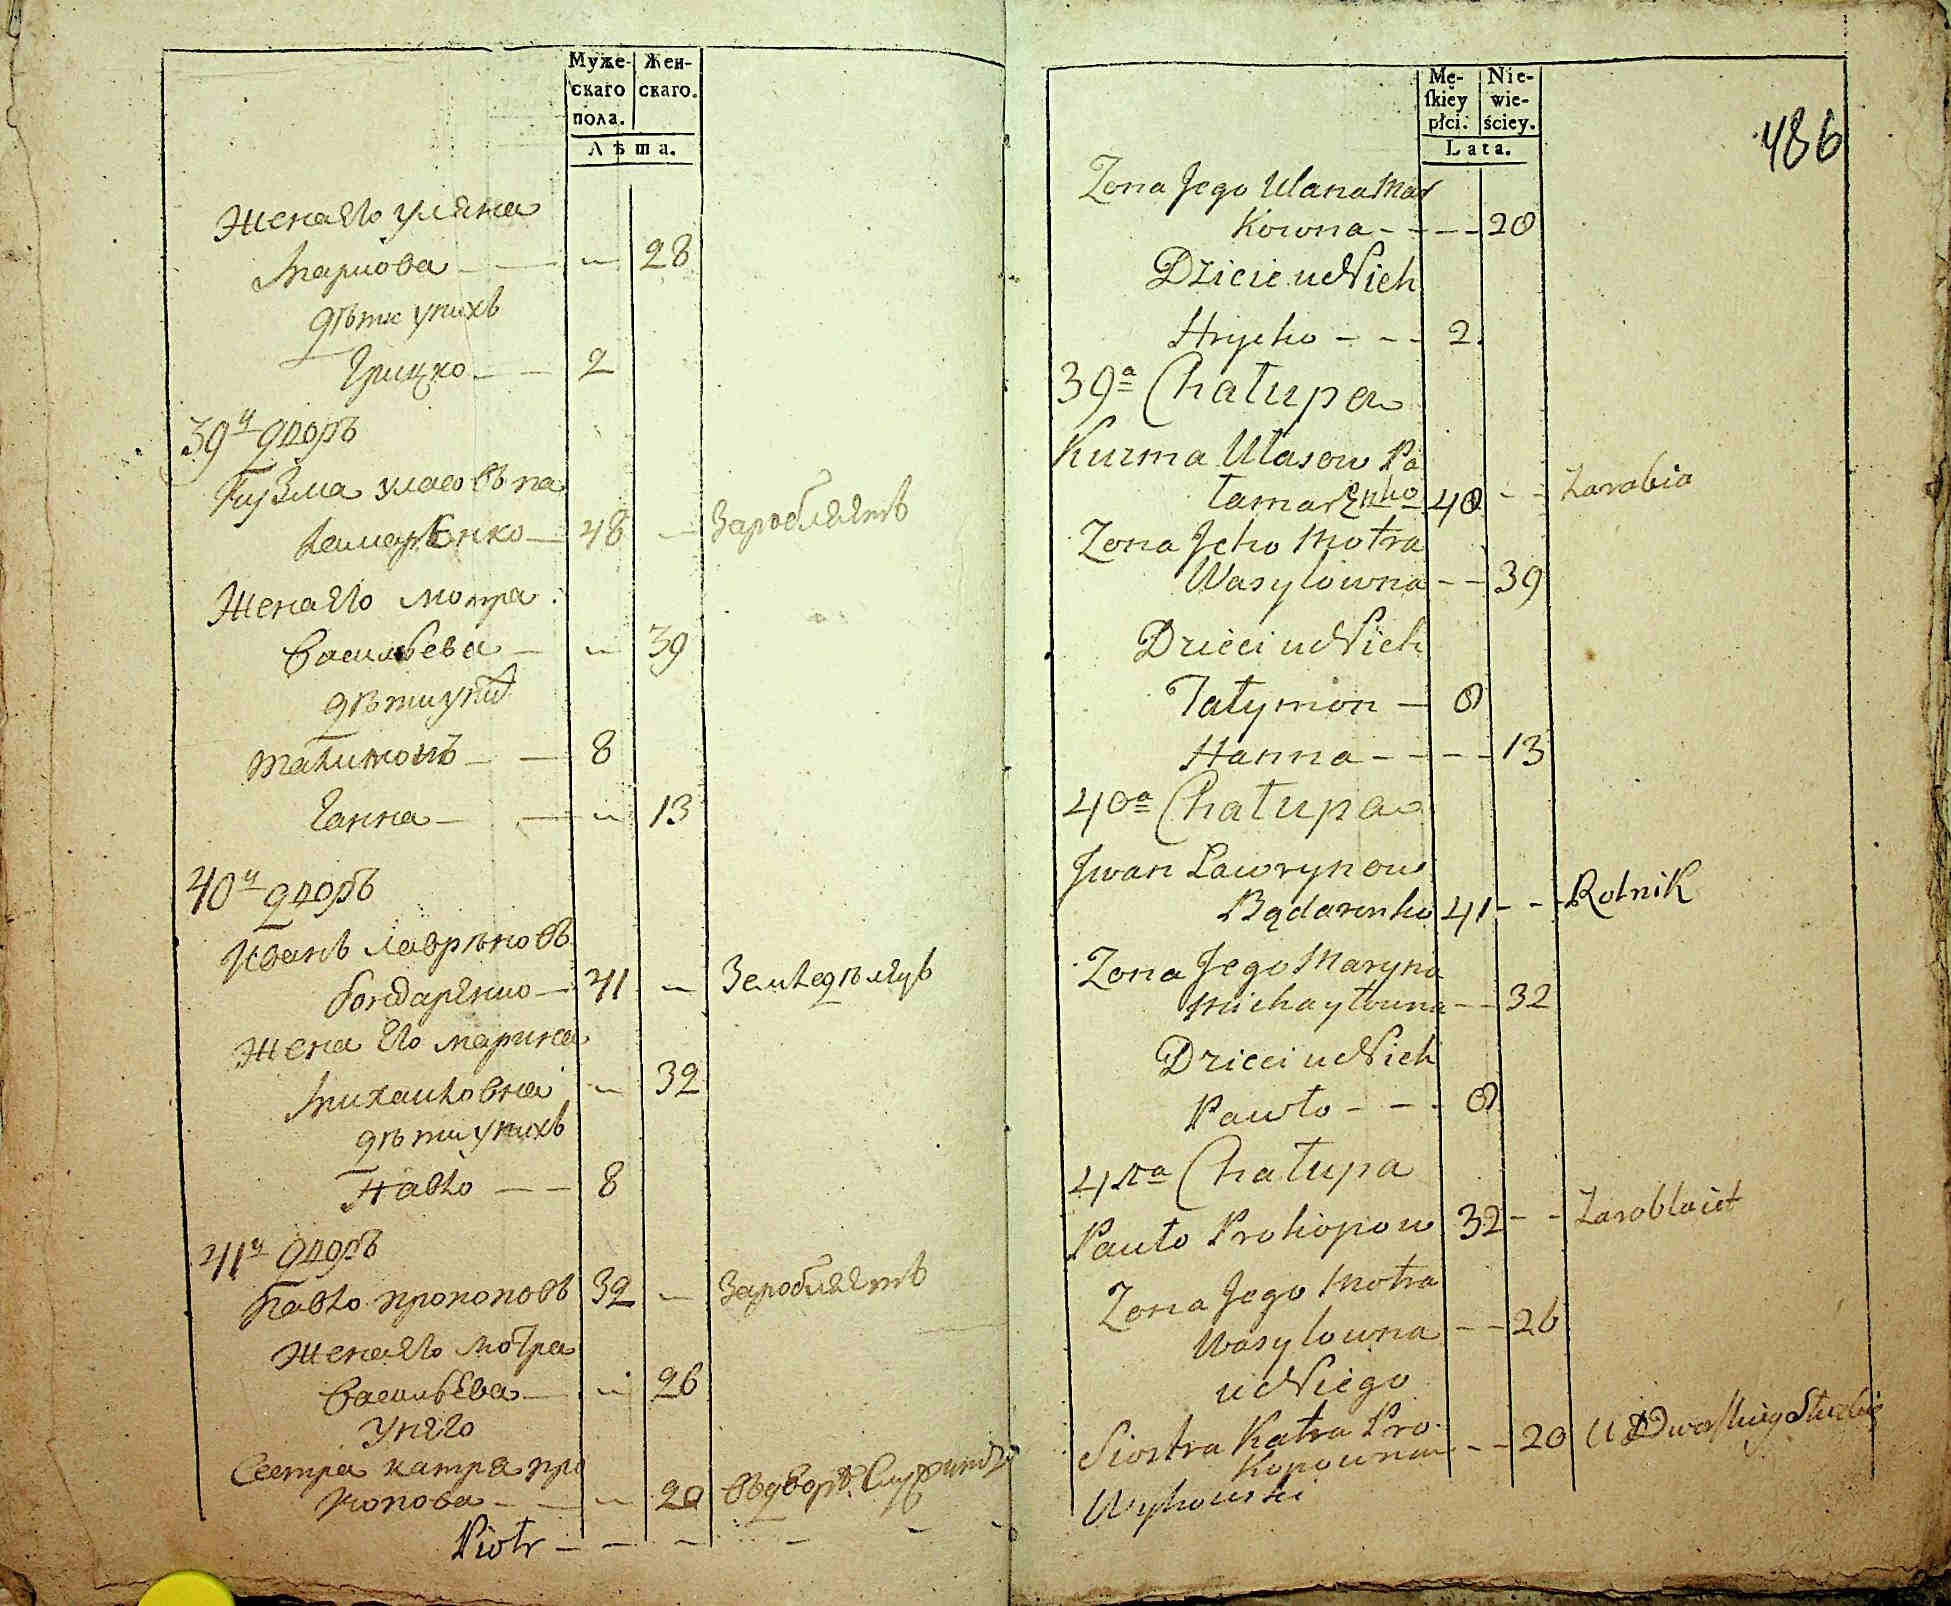 Муже- Жен-
скаго скаго.
пола.
Лѣта.
Жена его уляна
Маркова — — — 28
дѣти унихъ
Грицко — — 2
39й дворъ
Кузма уласовъ па
ламарЕнко — 48 — Заробляетъ
Жена его мотра
васильева — — 39
дѣти у них
талимонъ — — 8
Ганна — — — 13
40й дворъ
Иванъ лавриновъ
бондаренко — 41 — Земледѣлецъ
Жена его марина
михайловна — 32
дѣти унихъ
Павло — — 8
41й дворъ
Павло прокоповъ 32 — Заробляетъ
Жена его мотра
васильЕва — — 26
Унего
Сестра катря про
копова — — — 20 въдворѣ Служитъ
Piotr — — — —
Mę- Nie-
ſkiey wie-
płci. ściey.
Lata.
486
Zona Jego Ulana Mar
kowna - - - - 28
Dzicie u Nich
Hryćko - - - 2.
39ª Chałupa
Kurma Ułasow Pa
łamarEnko 48 - - Zarabia
Zona Jeho Motra
Wasylowna - - 39
Dzieci u Nich
Tałymon — 8
Hanna - - - - - 13
40ª Chałupa
Jwan Ławrynow
Bądarenko 41 - - - Rolnik
Zona Jego Maryna
Michayłowna - - 32
Dzieci u Nich
Pawło - - - 8
41ª Chałupa
Pawło Prokopow 32 - - Zarobłaiet
Zona Jego Motra
Wasylowna - - 26
u Niego
Siostra Katra Pro-
kopowna - - 20 U Dworskiey Służbie
Wyhowski